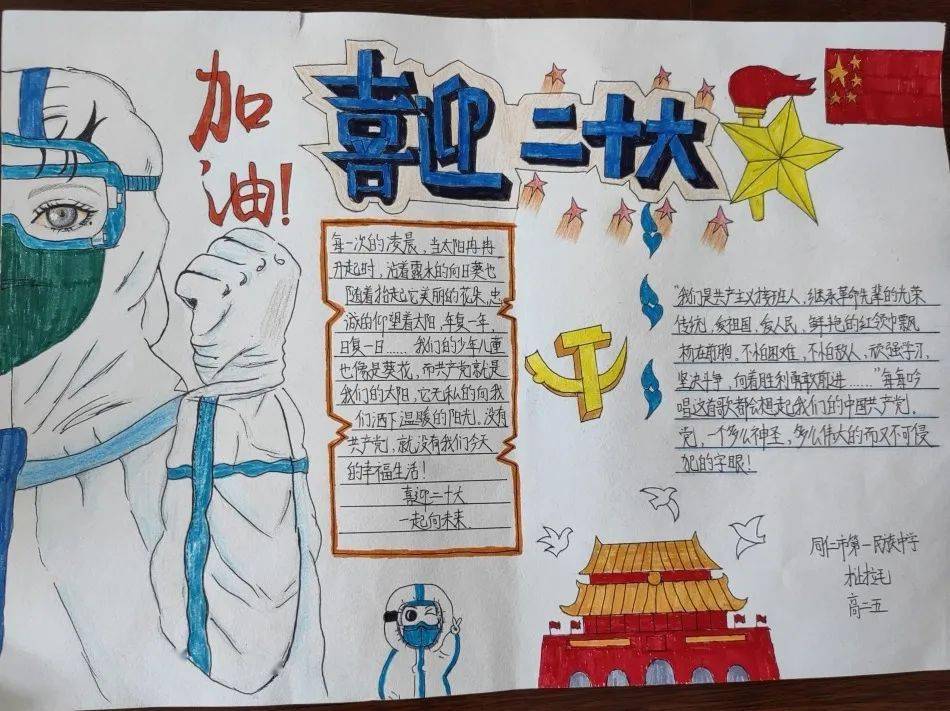 加
油!
喜迎二十大
每一次的凌晨,当太阳冉冉
升起时,沾着露水的向日葵也
随着抬起它美丽的花朵,忠
诚的仰望着太阳,年复一年,
日复一日……我们的少年儿童
也像是葵花,而共产党就是
我们的太阳,它无私的向我
们洒下温暖的阳光,没有
共产党,就没有我们今天
的幸福生活!
喜迎二十大
一起向未来.
"我们是共产主义接班人,继承革命先辈的光荣
传统,爱祖国,爱人民,鲜艳的红领巾飘
扬在前胸,不怕困难,不怕敌人,顽强学习,
坚决斗争,向着胜利勇敢前进……"每每吟
唱这首歌都会想起我们的中国共产党,
党,一个多么神圣,多么伟大的而又不可侵
犯的字眼!
同仁市第一民族中学
毛
高二五